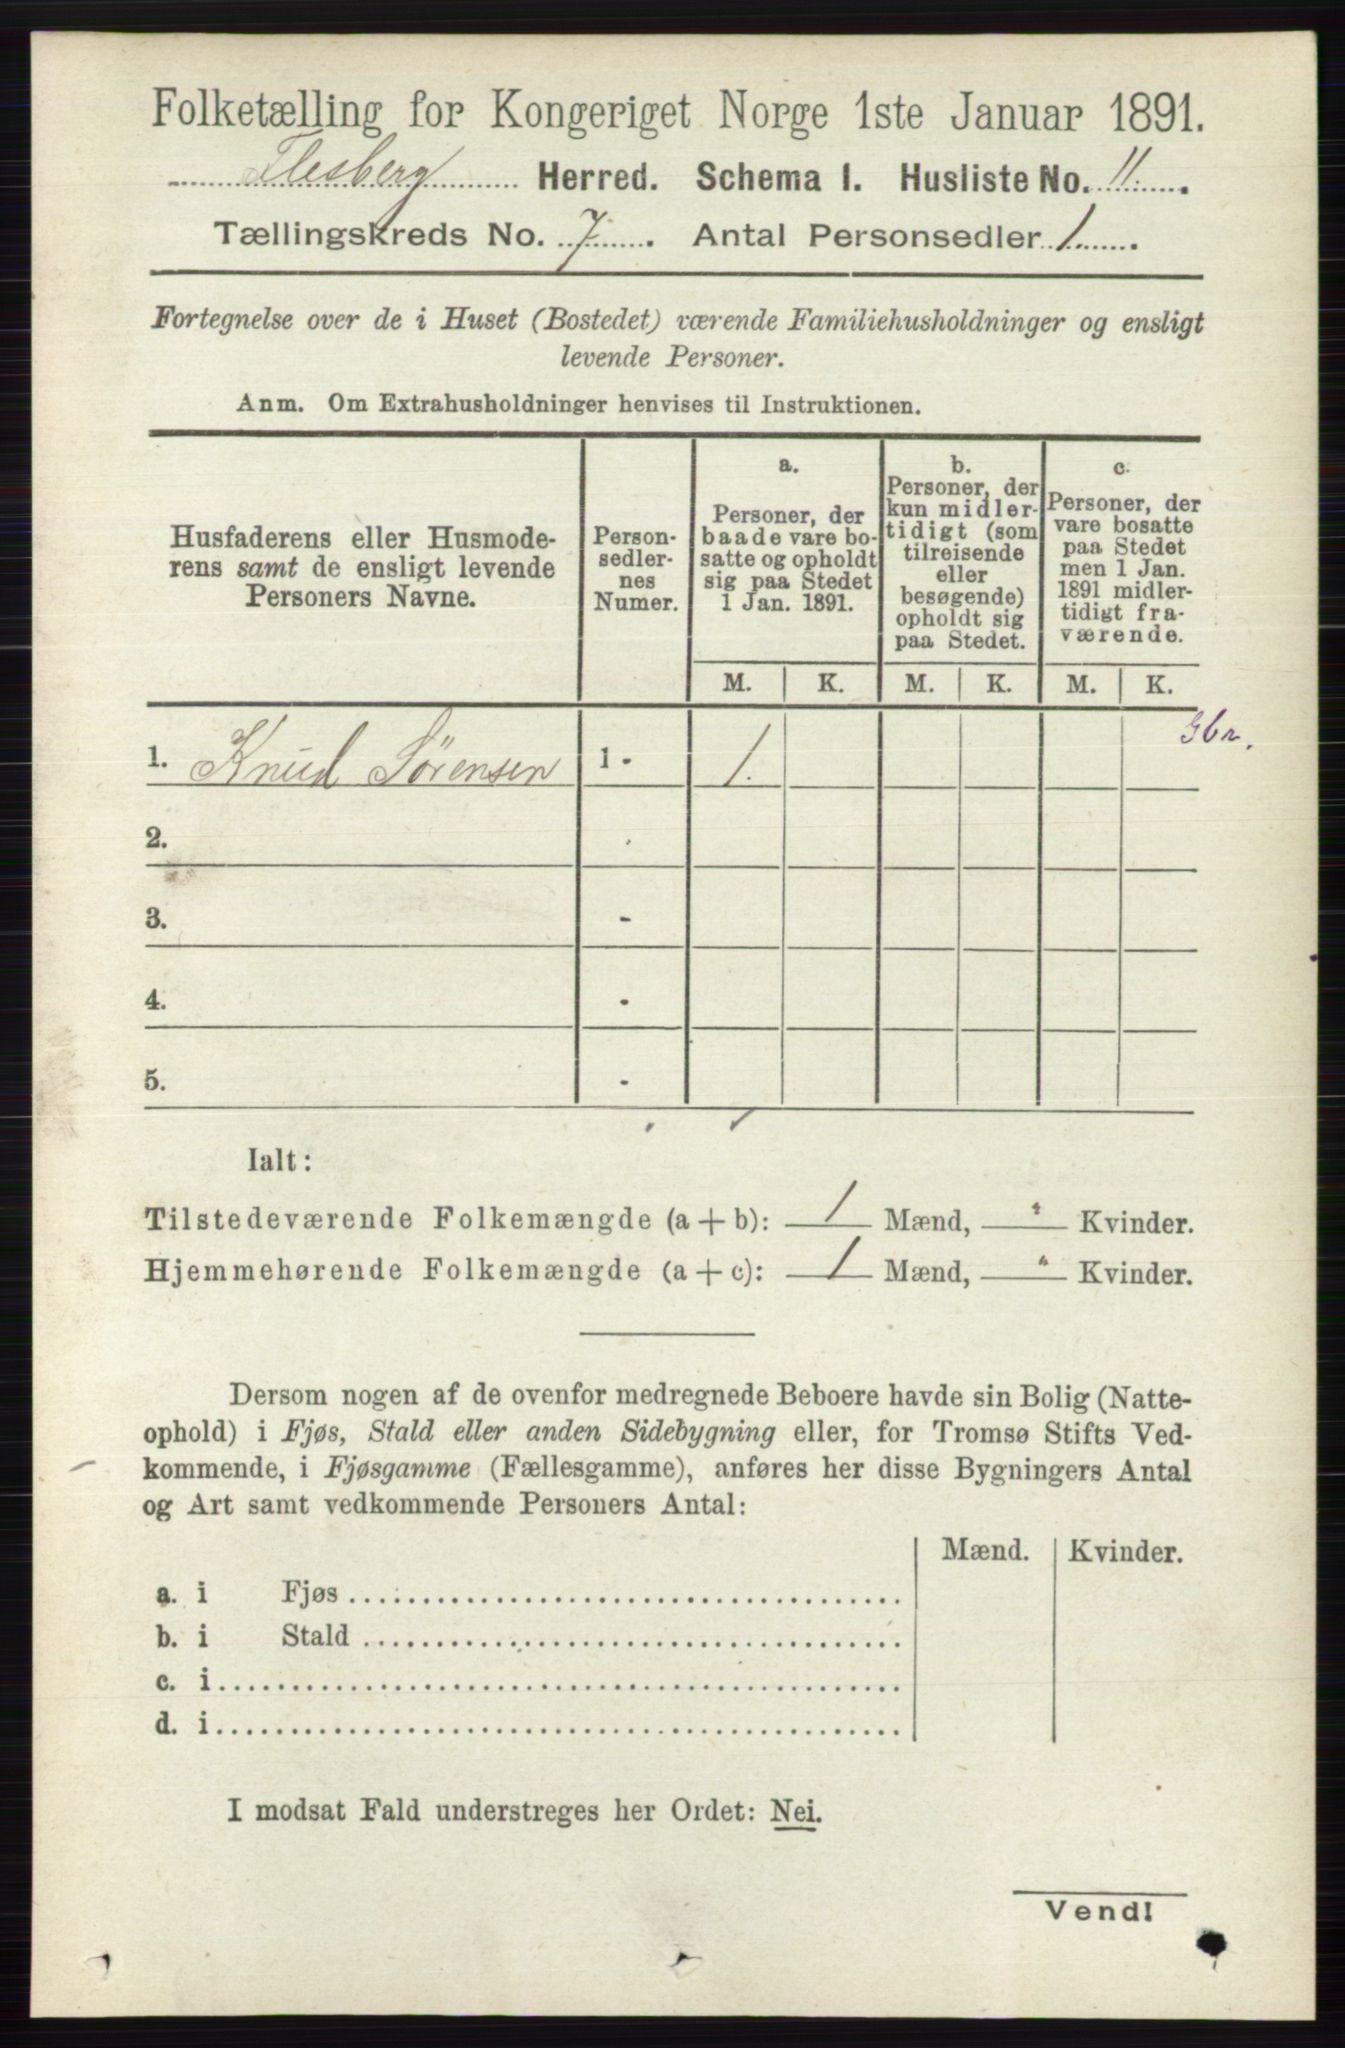 Folketælling for Kongeriget Norge 1ste Januar 1891.
Flesberg Herred. Schema I. Husliste No. 11.
Tællingskreds No. 7. Antal Personsedler 1.
Fortegnelse over de i Huset (Bostedet) værende Familiehusholdninger og ensligt
levende Personer.
Anm. Om Extrahusholdninger henvises til Instruktionen.
Husfaderens eller Husmode-
rens samt de ensligt levende
Personers Navne.
Person-
sedler-
nes
Numer.
a.
Personer, der
baade vare bo-
satte og opholdt
sig paa Stedet
1 Jan. 1891.
b.
Personer, der
kun midler-
tidigt (som
tilreisende
eller
besøgende)
opholdt sig
paa Stedet.
c.
Personer, der
vare bosatte
paa Stedet
men 1 Jan.
1891 midler-
tidigt fra-
værende.
M. K. M. K. M. K.
Gbr.
1. Knud Sørensen 1 - 1.
2. -
3. -
4. -
5. -
Ialt:
Tilstedeværende Folkemængde (a + b): 1 Mænd, " Kvinder.
Hjemmehørende Folkemængde (a + c): 1 Mænd, " Kvinder.
Dersom nogen af de ovenfor medregnede Beboere havde sin Bolig (Natte-
ophold) i Fjøs, Stald eller anden Sidebygning eller, for Tromsø Stifts Ved-
kommende, i Fjøsgamme (Fællesgamme), anføres her disse Bygningers Antal
og Art samt vedkommende Personers Antal:
Mænd. Kvinder.
a. i Fjøs
b. i Stald
c. i
d. i
I modsat Fald understreges her Ordet: Nei.
Vend!